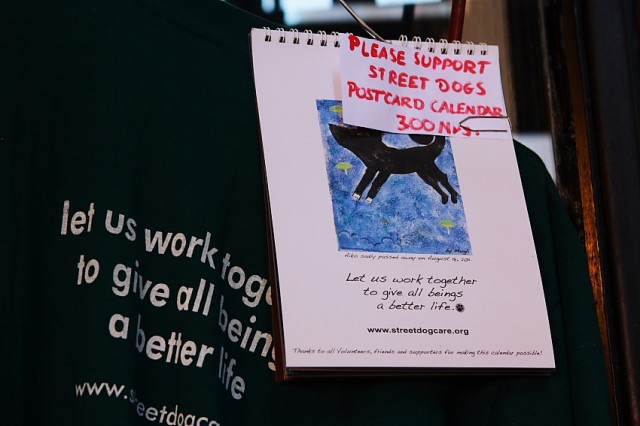 PLEASE SUPPORT
STREET DOGS
POSTCARD CALENDAR
300 NRS.
by Hugh
Aiko sadly passed away on August 16, 2011.
Let us work together
to give all beings
a better life.
www.streetdogcare.org
Thanks to all Volunteers, friends and supporters for making this calendar possible!
let us work toge
to give all being
a better life
www.streetdogcare